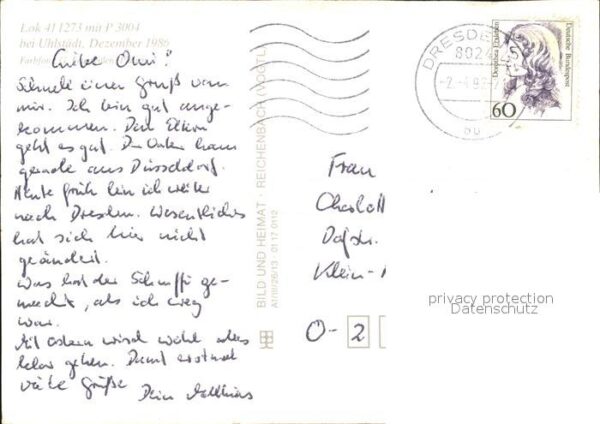 Lok 41 1273 mit P 3004
bei Uhlstädt, Dezember 1986
Liebe Omi!
Schnell einen Gruß von
mir. Ich bin gut ange-
kommen. Den Eltern
geht es gut. Der Vater kam
gerade aus Düsseldorf.
Heute früh bin ich weiter
nach Dresden. Wesentliches
hat sich hier nicht
geändert.
Was hat der Schnuffi ge-
macht, als ich weg
war.
Mit Ostern wird wohl alles
klar gehen. Damit erstmal
viele Grüße
Dein Matthias
BILD UND HEIMAT · REICHENBACH (VOGTL)
A1/III/26/13 01 17 0112
DRESDEN
8024
Dorothea Erxleben
Deutsche Bundespost
60
Frau
Charlott
Dorfstr.
Klein-
O- 2
privacy protection
Datenschutz